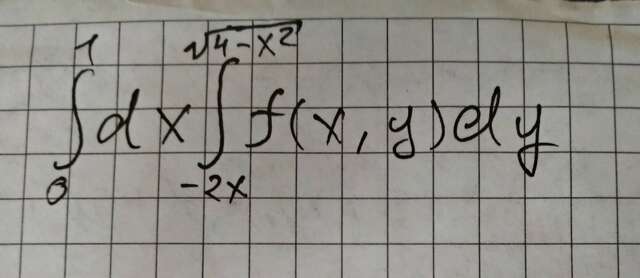 ∫₀¹ dx ∫₋₂ₓ^√(4-x²) f(x, y) dy